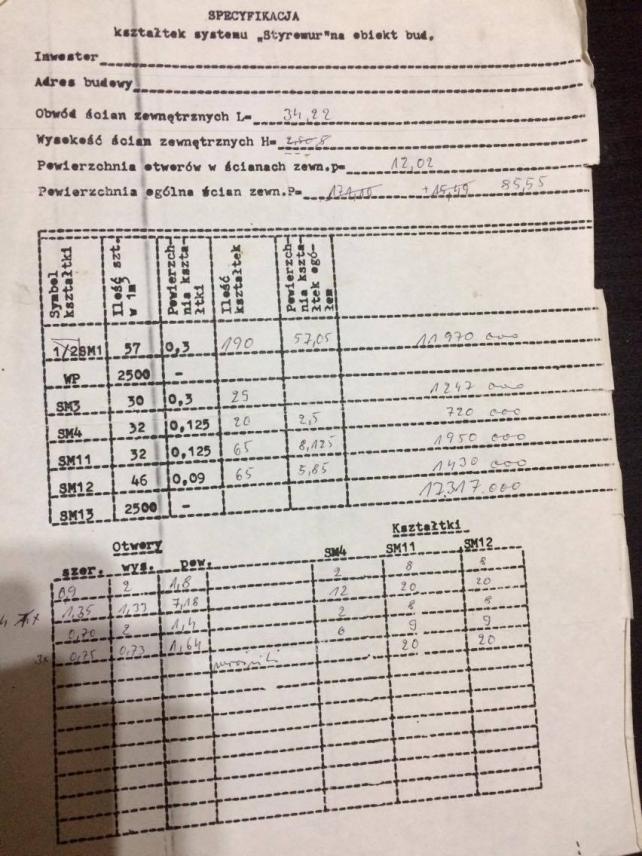 SPECYFIKACJA
kształtek systemu „Styromur"na obiekt bud.
Inwestor
Adres budowy
Obwód ścian zewnętrznych L= 34,22
Wysokość ścian zewnętrznych H= 2,50,8
Powierzchnia otworów w ścianach zewn.p= 12,02
Powierzchnia ogólna ścian zewn.P= 85,55
Symbol kształtki Ilość szt. w 1m3 Powierzchnia kształtki Ilość kształtek Powierzchnia kształtek ogółem
1/2SM1 57 0,3 190 57,05 11 970 000
WP 2500 -
SM3 30 0,3 25 1247 000
SM4 32 0,125 20 2,5 720 000
SM11 32 0,125 65 8,125 1950 000
SM12 46 0,09 65 5,85 1430 000
SM13 2500 - 17.317.000
Otwory Kształtki
szer. wys. pow. SM4 SM11 SM12
0,9 2 1,8 2 8 8
4 x 1,35 1,33 7,18 12 20 20
0,70 2 1,4 2 8 8
3x 0,75 0,73 1,64 6 9 9
20 20